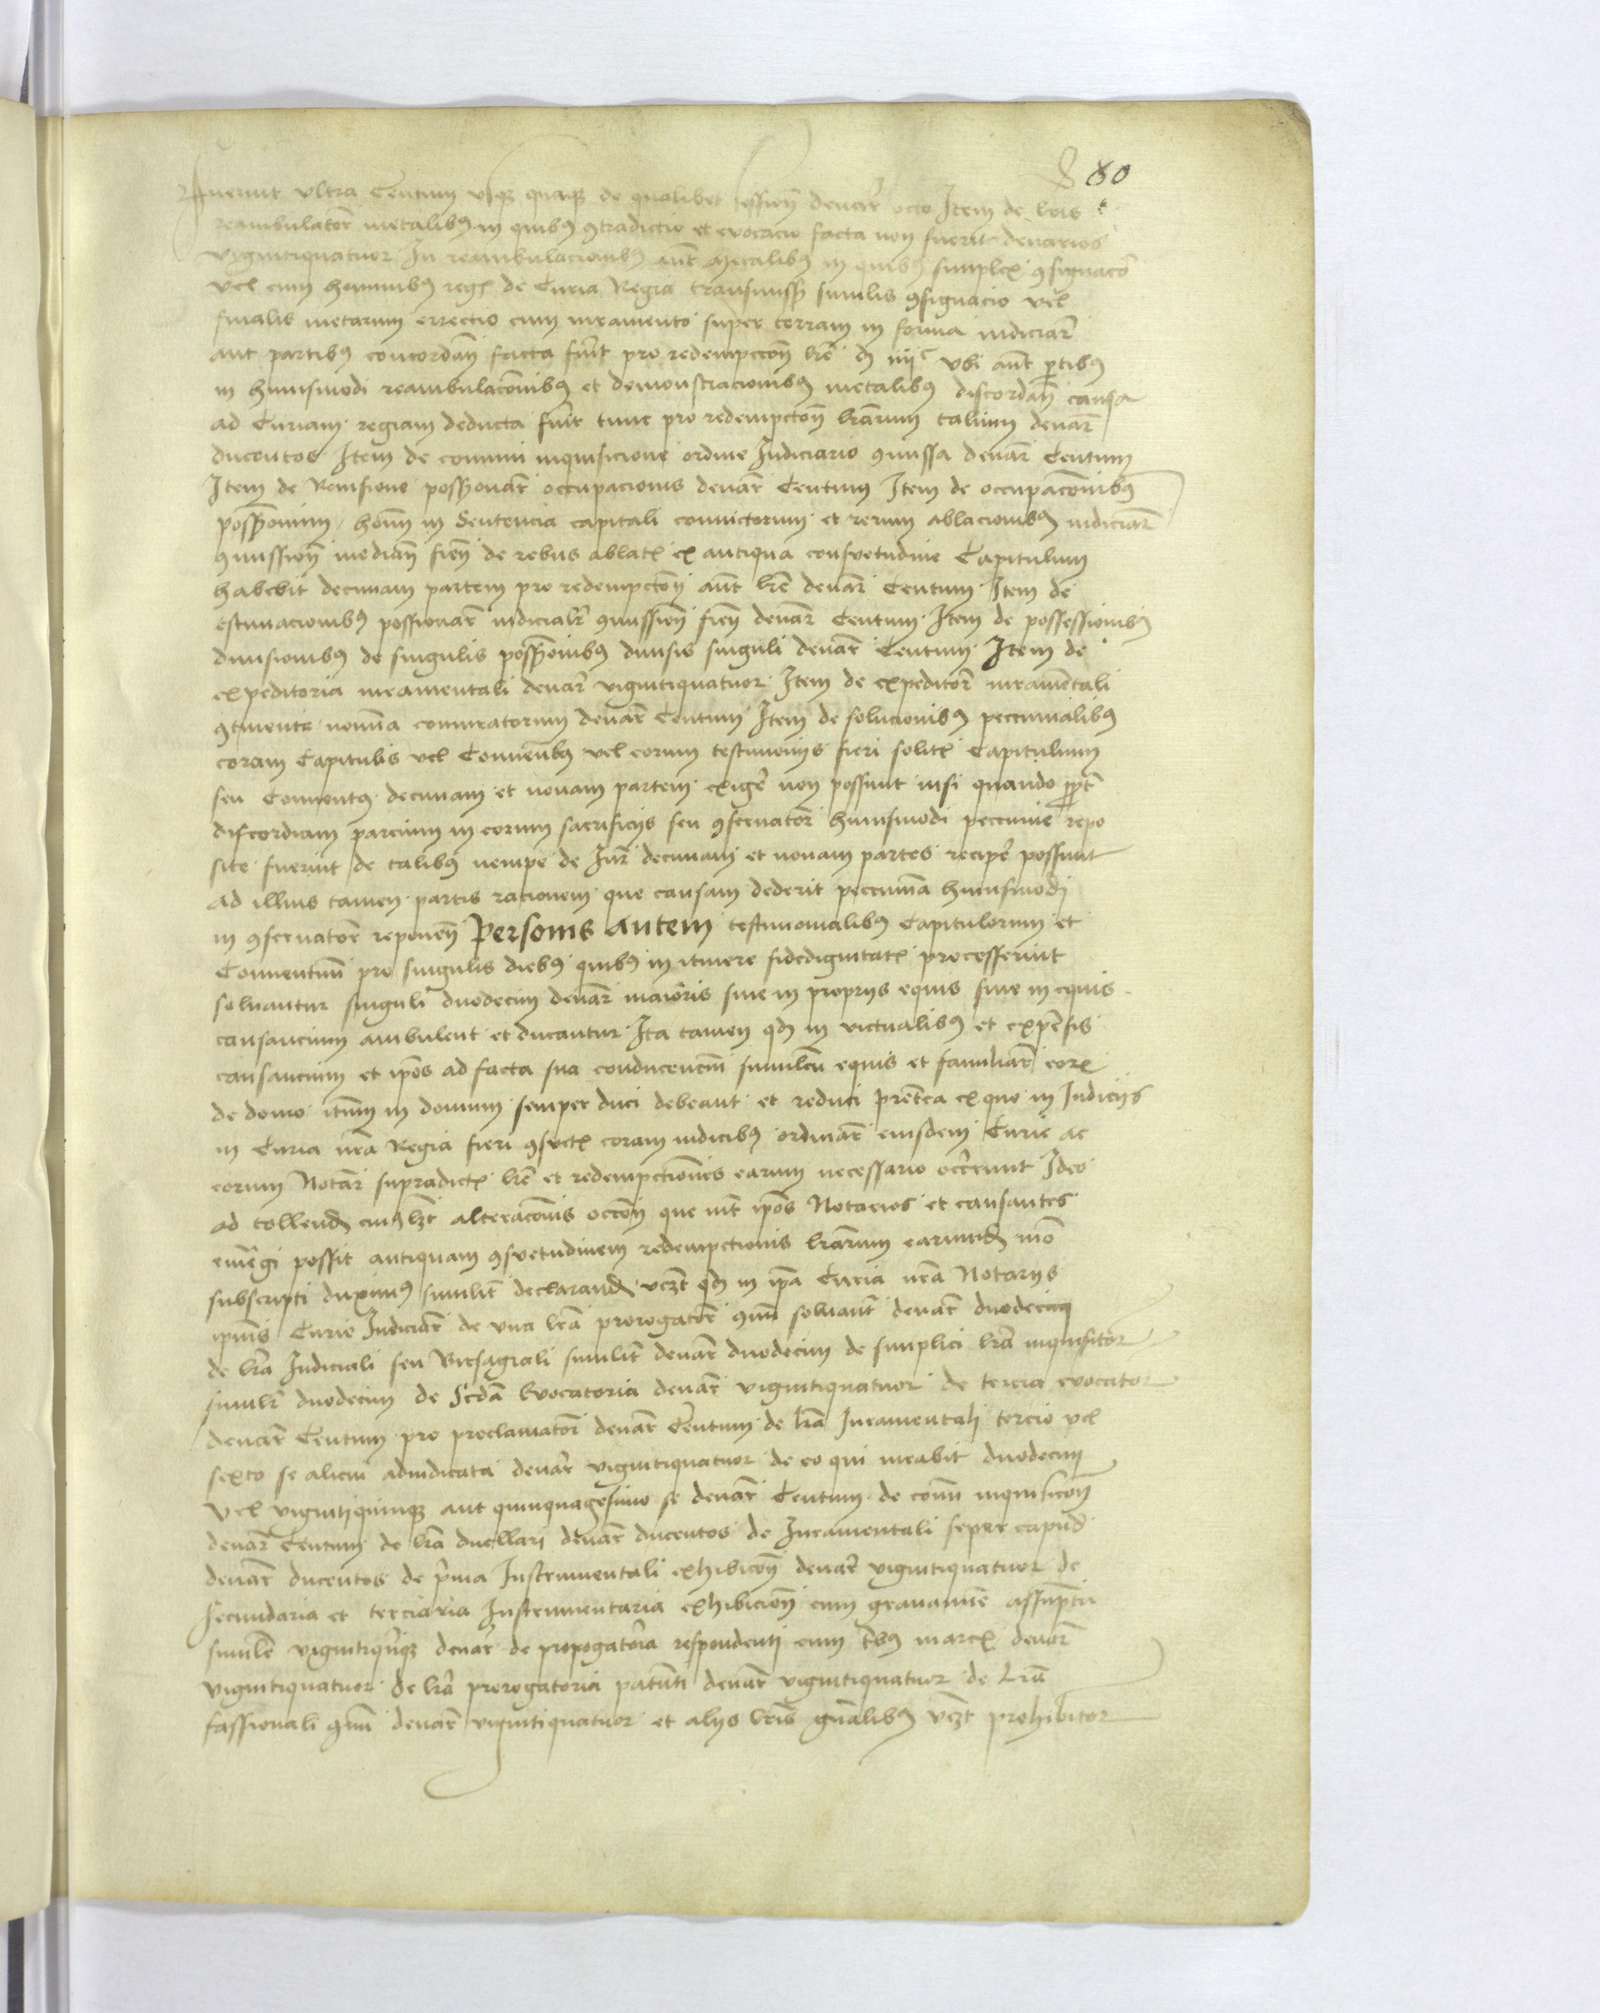 80
fuerint ultra Centum usq quinq de qualibet possession denar octo Item de lris
reambulator metalibus in quibus contradictio et evocacio facta non fuerit denarios
viginti quatuor In reambulacionibus aut metalibus in quibus simplex consignacio
vel cum hominibus reg de Curia Regia transmiss similis consignacio vel
finalis metarum errectio cum iuramento super terram in forma iudiciar
aut partibus concordan facta fuit pro redempcion lre d iiijc ubi aut partibus
in huiusmodi reambulacionibus et demonstracionibus metalibus discordan causa
ad Curiam regiam deducta fuit tunc pro redempcion lrarum talium denar
ducentos Item de comuni inquisicione ordine Judiciario comissa denar Centum
Item de Revisione possessionar occupacionis denar Centum Item de occupacionibus
possessionum hominum in Sentencia capitali convictorum et rerum ablacionibus iudiciar
comission median fien de rebus ablatis ex antiqua consvetudine Capitulum
habebit decimam partem pro redempcion aut lre denar Centum Item de
estimacionibus possessionar iudicialr comission fien denar Centum Item de possessionibus
divisionibus de singulis possessionibus divisis singuli denar Centum Item de
expeditoria iuramentali denar vigintiquatuor Item de expeditor iuramentali
continente nomina coniuratorum denar Centum Item de solucionibus peccunialibus
coram Capitulis vel Conventibus vel eorum testimonijs fieri solitis Capitulum
seu Conventus decimam et nonam partem exiger non possunt nisi quando propter
discordiam parcium in eorum sacrificijs seu conservator huiusmodi peccunie repo
site fuerint de talibus nempe de Jure decimam et nonam partes reciper possunt
ad illius tamen partis racionem que causam dederit peccunia huiusmodi
in conservator reponen Personis autem testimonialibus Capitulorum et
Conventuum pro singulis diebus quibus in itinere fidedignitatis processerint
solvantur singuli duodecim denar maioris sive in proprijs equis sive in equis
causancium ambulent et ducantur Ita tamen quod in victualibus et expensis
causancium et ipos ad facta sua conducencium simulcum equis et familiar eorum
de domo iterum in domum semper duci debeant et reduci preterea ex quo in Judicijs
in Curia nra Regia fieri consvetis coram iudicibus ordinar eiusdem Curie ac
eorum Notar supradictis lre et redempciones earum necessario occurrunt Ideo
ad tollend cuiuslibet alteracionis occasion que inter ipos Notarios et causantes
emergi possit antiquam consvetudinem redempcionis lrarum earumdem modo
subscripti duximus similiter declarand videlicet quod in ipa Curia nra Notarijs
ipius Curie Judiciar de una lra prorogator comuni solvant denar duodecim
de lra Judiciali seu Birsagiali similiter denar duodecim de simplici lra inquisitor
similr duodecim de Scda Evocatoria denar vigintiquatuor de tercia evocator
denar Centum pro proclamator denar Centum de lra Juramentali tercio vel
sexto se alicui adiudicata denar vigintiquatuor de eo qui iurabit duodecim
vel vigintiquinq aut quinquagesimo se denar Centum de comuni inquisicion
denar Centum de lra duellari denar ducentos de Juramentali super capud
denar ducentos de prima Instrumentali exhibicion denar vigintiquatuor de
secundaria et terciaria Instrumentaria exhibicion cum gravamine assumpti
similr vigintiquinq denar de prorogatoria respondenti cum tribus marcis denar
vigintiquatuor de lra prorogatoria patenti denar vigintiquatuor de Lra
fassionali comuni denar vigintiquatuor et alijs lris generalibus videlicet prohibitor